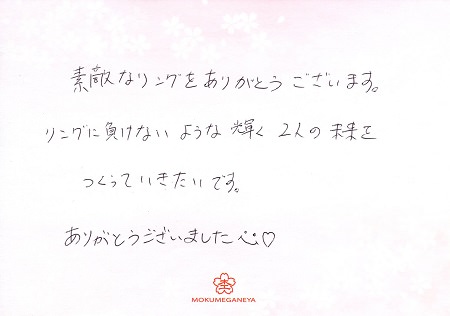 素敵なリングをありがとうございます。
リングに負けないような輝く2人の未来を
つくっていきたいです。
ありがとうございました♡
MOKUMEGANEYA